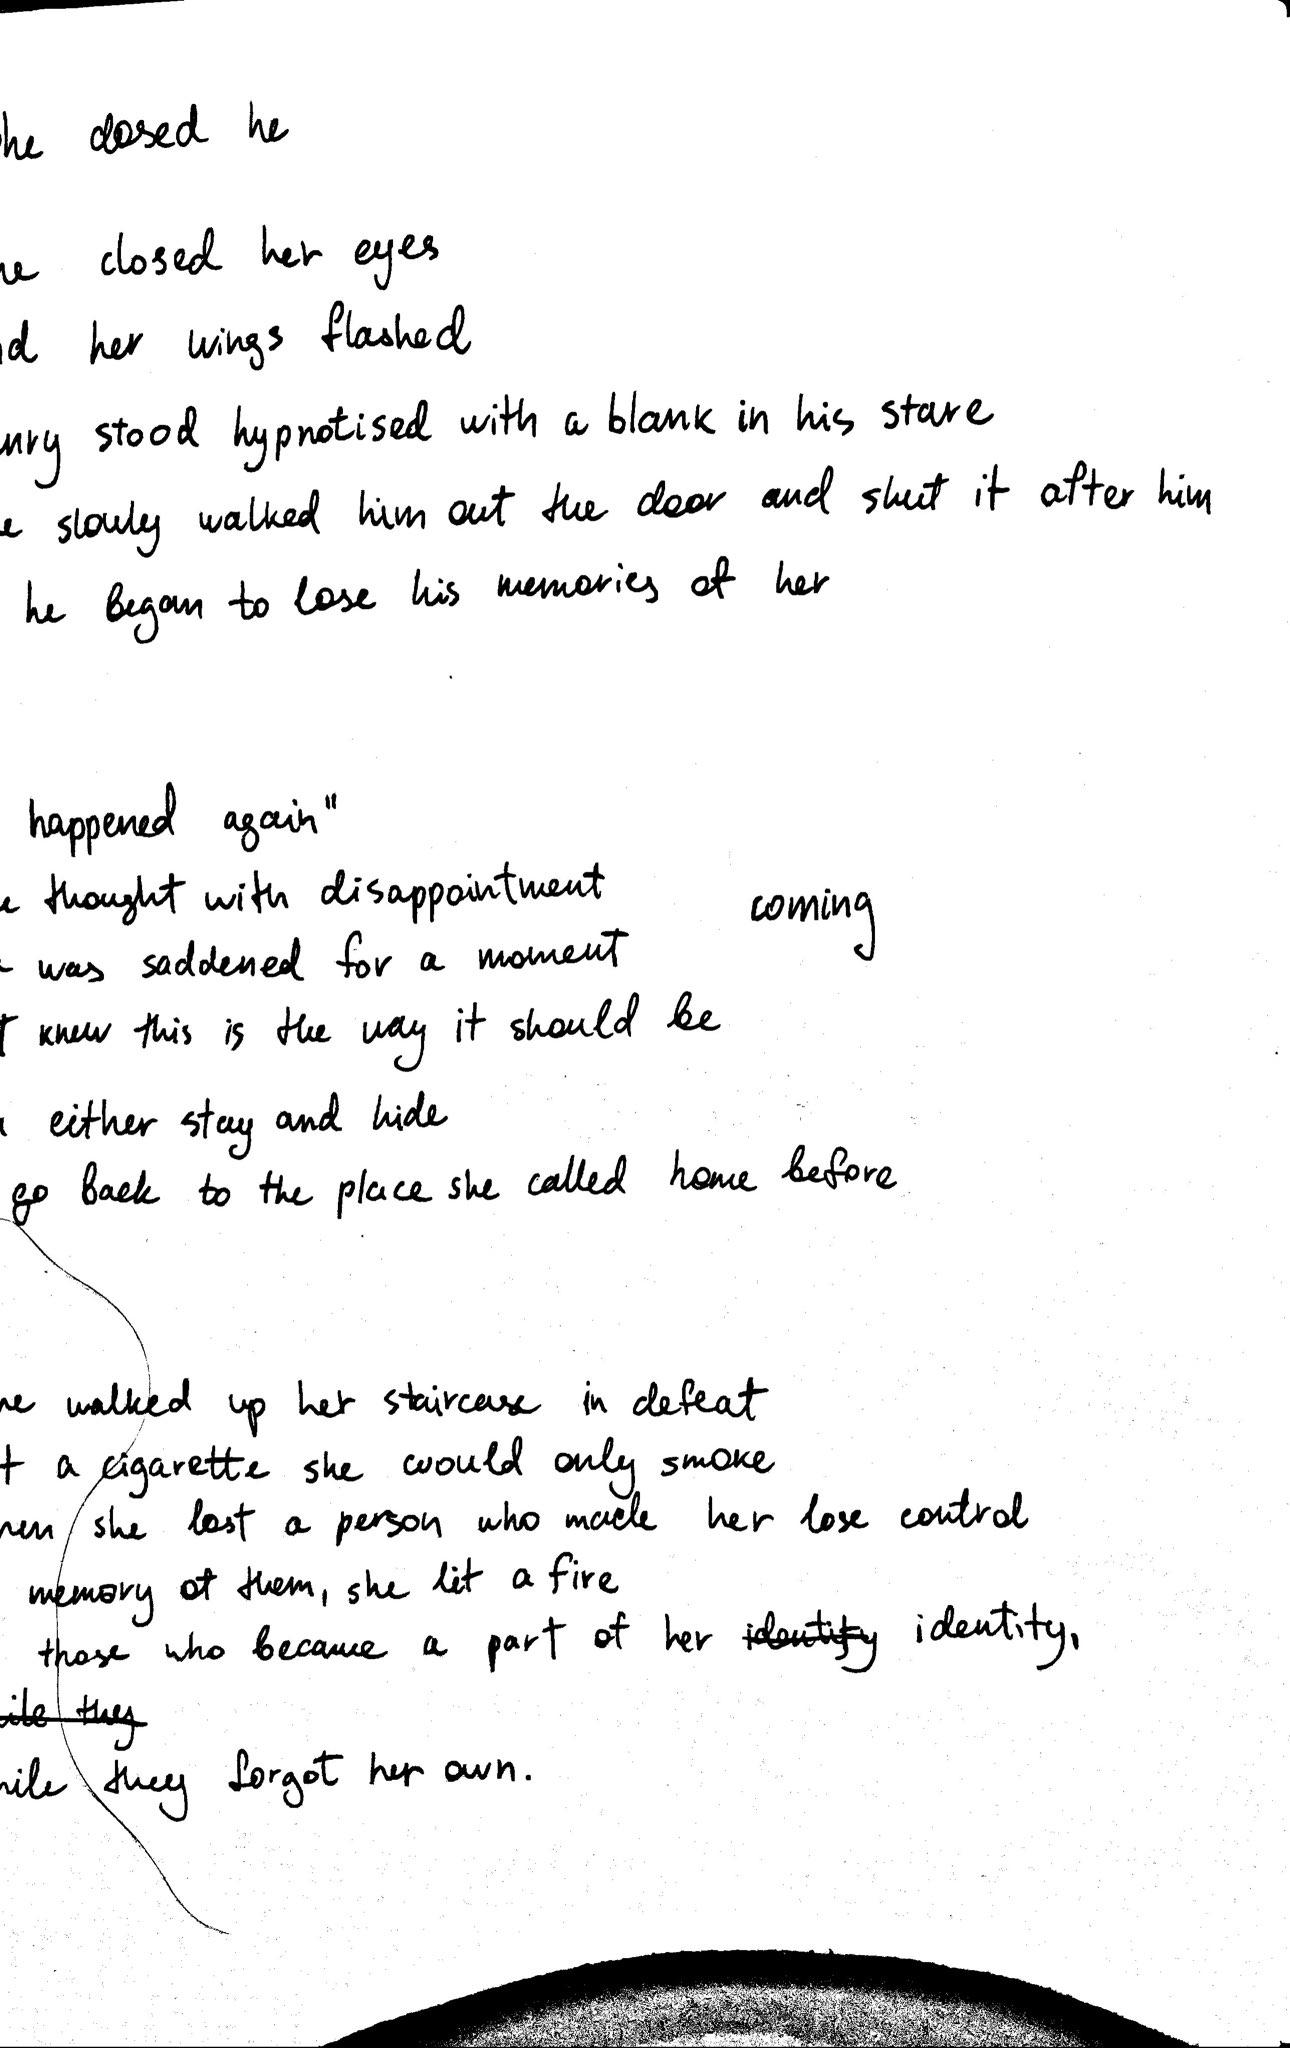 she closed he
he closed her eyes
nd her wings flashed
nry stood hypnotised with a blank in his stare
e slowly walked him out the door and shut it after him
he began to lose his memories of her
happened again"
e thought with disappointment
coming
was saddened for a moment
t knew this is the way it should be
either stay and hide
go back to the place she called home before
he walked up her staircase in defeat
t a cigarette she would only smoke
hen she lost a person who made her lose control
memory of them, she lit a fire
those who became a part of her identify identity,
ile they
hile they forgot her own.